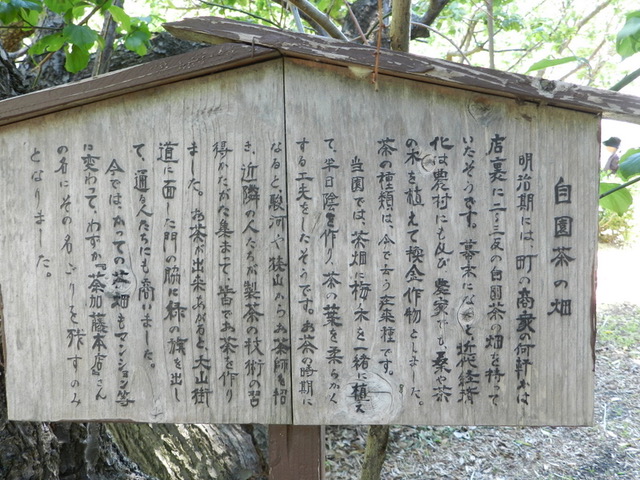 自園茶の畑
明治期には、町の商家の何軒かは
店裏に二・三反の自園茶の畑を持って
いたそうです。幕末になると近代経済
化は農村にも及び農家でも、桑や茶
の木を植えて換金作物としました。
茶の種類は、今で言う在来種です。
当園では、茶畑に梅の木を一緒に植え
て、半日陰を作り、茶の葉を柔らかく
する工夫をしたそうです。お茶の時期に
なると、駿河や狭山からお茶師を招
き、近隣の人たちが製茶の技術の習
得かたがた集まって、皆でお茶を作り
ました。お茶が出来あがると、大山街
道に面した門の脇に緑の旗を出し
て、通る人たちにも商いました。
今では、かつての茶畑もマンション等
に変わって、わずか『茶加藤本店』さん
の名にその名ごりを残すのみ
となりました。